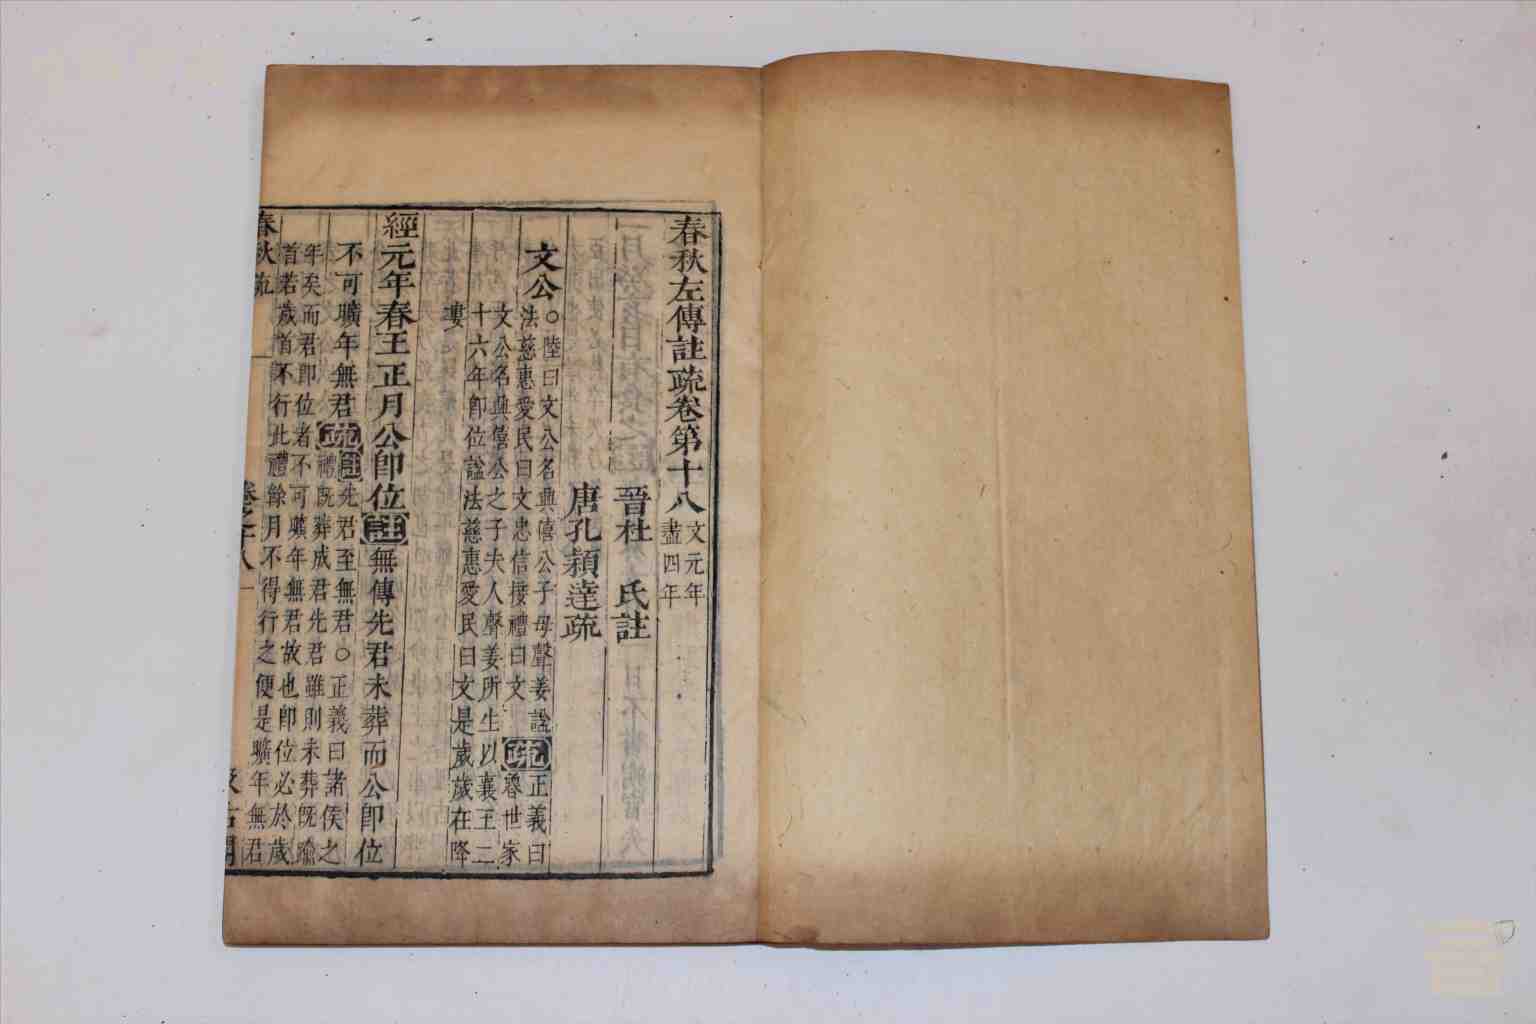 春秋左傳註疏卷第十八
文元年
盡四年
晉杜 氏註
唐孔穎達疏
文公
○陸曰文公名興僖公子母聲姜謚
法慈惠愛民曰文忠信接禮曰文
疏
正義曰
魯世家
文公名興僖公之子夫人聲姜所生以襄王二
十六年卽位謚法慈惠愛民曰文是歲歲在降
婁
經元年春王正月公卽位註無傳先君未葬而公卽位
不可曠年無君疏
註先君至無君○正義曰諸侯之
禮既葬成君先君雖則未葬既踰
年矣而君卽位者不可曠年無君故也卽位必於歲
首若歲首不行此禮餘月不得行之便是曠年無君
春秋疏
卷之十八
一